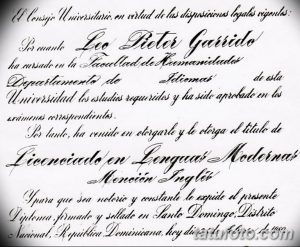 El Consejo Universitario, en virtud de las disposiciones legales vigentes:
Por cuanto Leo Pieter Garrido
ha cursado en la Facultad de Humanidades
Departamento de Idiomas de esta
Universidad los estudios requeridos y ha sido aprobado en los
exámenes correspondientes.
Por tanto, ha venido en otorgarle y le otorga el título de
Licenciado en Lenguas Modernas
Mención Inglés
Y para que sea notorio y constante le expide el presente
Diploma, firmado y sellado en Santo Domingo, Distrito
Nacional, República Dominicana, hoy día
tatufoto.com